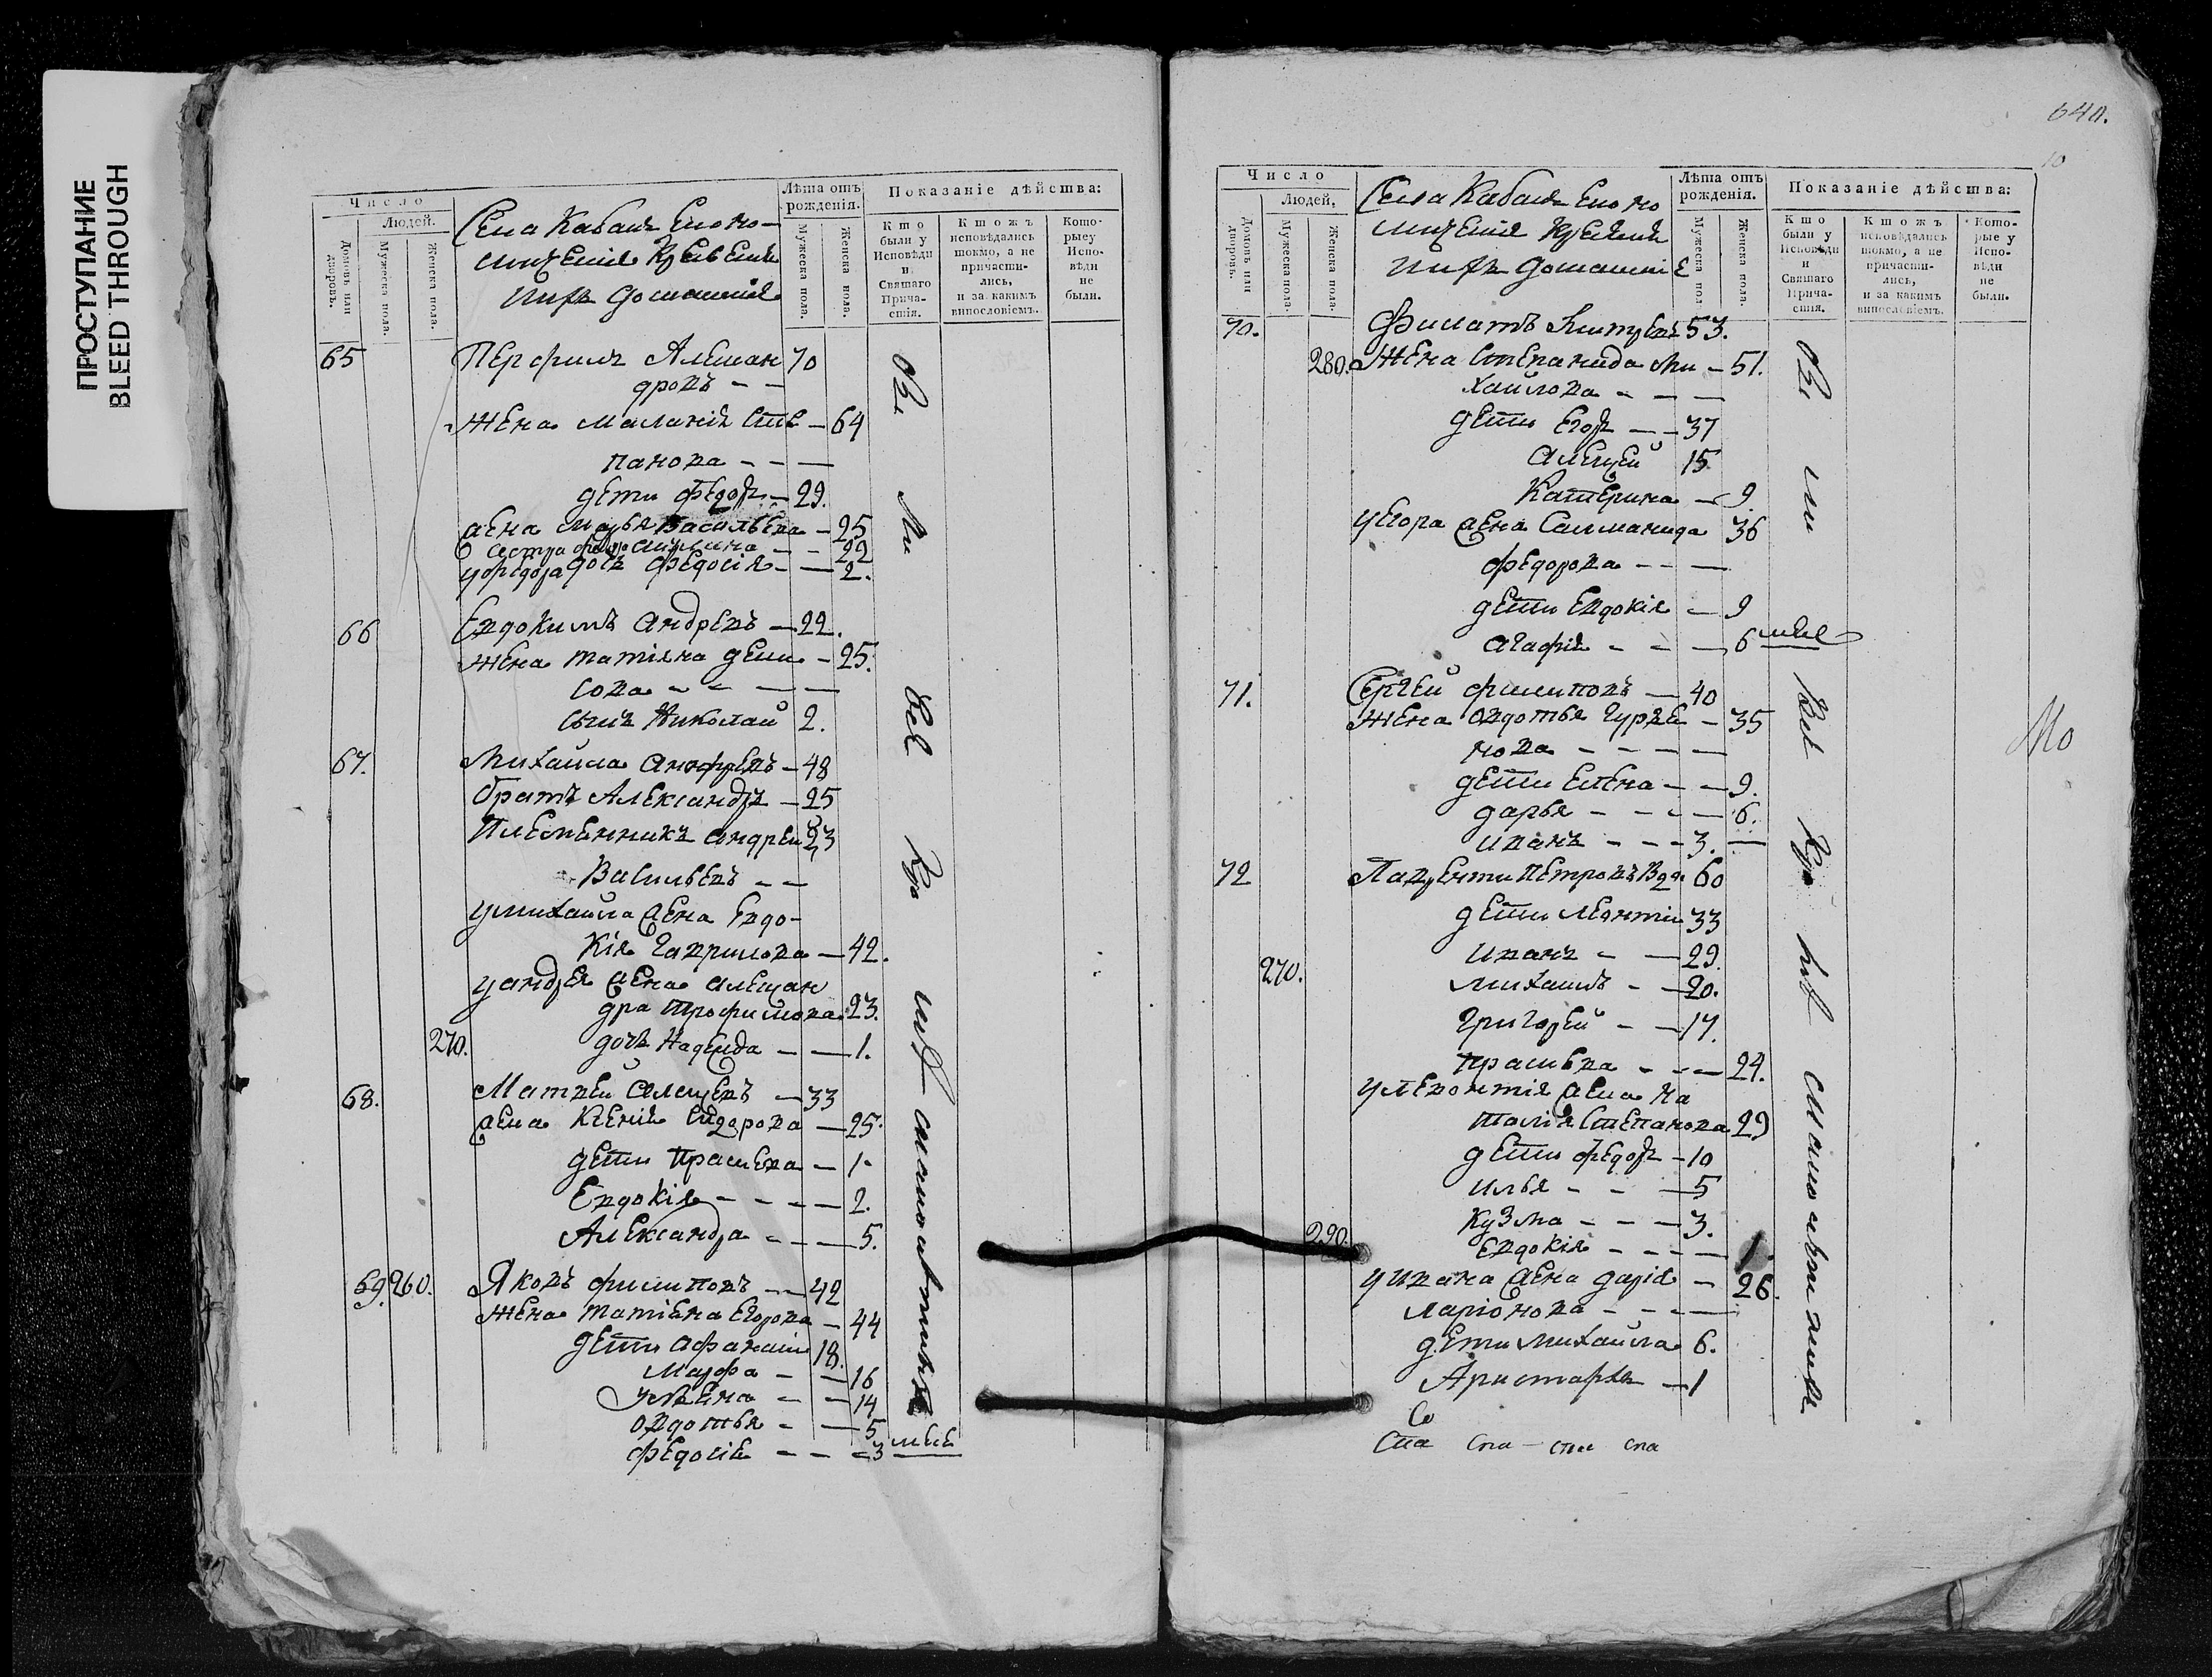 ПРОСТУПАНИЕ
BLEED THROUGH
Число
Людей.
Домовъ или дворовъ.
Мужеска пола.
Женска пола.
Села Кабанъ Еконо-
мическiя Кресьяня
ихъ домашнiя
Лѣта отъ рожденiя.
Мужеска пола.
Женска пола.
Показанiе дѣйства:
Кто были у Исповѣди и Святаго Прича-стiя.
Ктожъ исповѣдались токмо, а не причасти-лись, и за какимъ винословiемъ.
Кото-рые у Испо-вѣди не были.
65 Перфилъ Алексан 70
дровъ - -
Жена Маланiя Сте - 64
панова - - -
дети Федоръ - 29.
жена Марья Васильева - 25
сестра - - 22
уФедора дочь Федосiя - - 2.
66 Евдокимъ Андревъ - 22.
жена татiяна дени - 25.
сова - - - -
сынъ Николай 2.
67. Михайла Андревъ - 48
братъ Александръ - 25
Племенникъ андрей 23
Васильевъ - -
уМихайла жена Евдо-
кiя Гаврилова - 42.
уандрея жена алексан
дра трофимова 23.
270. дочь Надежда - - 1.
68. Матвей Алексевъ - 33
жена Ксенiя Сидорова - 25.
дети Прасковя - 1.
Евдокiя - - - - 2.
Александра - - - 5.
69. 260. Яковъ филиповъ - - 42
жена татiяна Егорова - 44
дети афанасiи 18.
Марфа - - 16
Ульяна - - 14
овдотья - - 5
федосiя - - - 3 мѣся
Вси
640.
10
Число
Людей.
Домовъ или дворовъ.
Мужеска пола.
Женска пола.
Села Кабанъ Еконо
мическiя Кресьяня
ихъ домашнiе
Лѣта отъ рожденiя.
Мужеска пол
Женска пола.
Показанiе дѣйства:
Кто были у Исповѣди и Святаго Прича-стiя.
Ктожъ исповѣдались токмо, а не причасти-лись, и за какимъ винословiемъ.
Кото-рые у Испо-вѣди не были.
70. Филатъ Дмитревъ 53.
280. Жена Степанида Ми - 51.
хайлова - - -
дети Егоръ - - 37
Алексей 15
Катерина - 9.
уегора жена Саламанида 36
федорова - - -
дети Евдокiя - 9
агафiя - - - 6 мѣся
71. Сергей филиповъ - 40
Жена овдотья гурья - 35
нова - - - -
дети Елена - - 9.
дарья - - - - 6.
иванъ - - - 3. -
72 Лаврентiи Петровъ Вдв 60
дети Леонтiи 33
270. иванъ - - 29.
михаилъ - - 20.
григорей - - 17.
прасковя - - - 24.
уЛевонтiя жена На
талiя Степанова 29
дети Федоръ - 10
илья - - - 5
Кузма - - - 3.
290. Евдокiя - - - - 1.
уивана жена дарiя - 26.
ларiонова - - - -
дети михайла 6.
Аристархъ - 1
Со
Спа Спа - спа спа
Мо